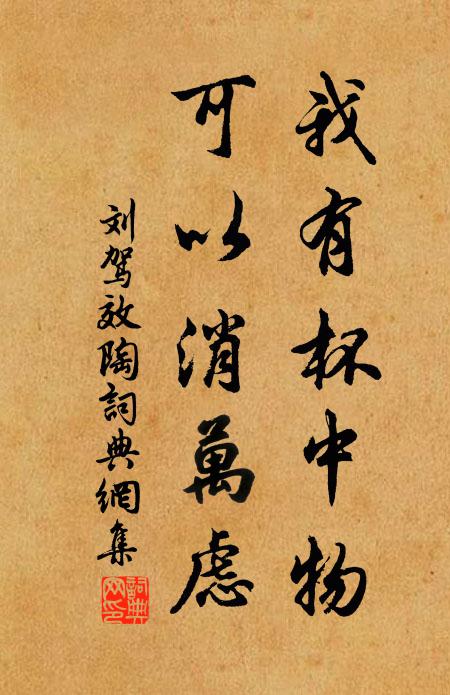 我有杯中物
可以消萬慮
刘驾效陶詞典網集
詞典网印